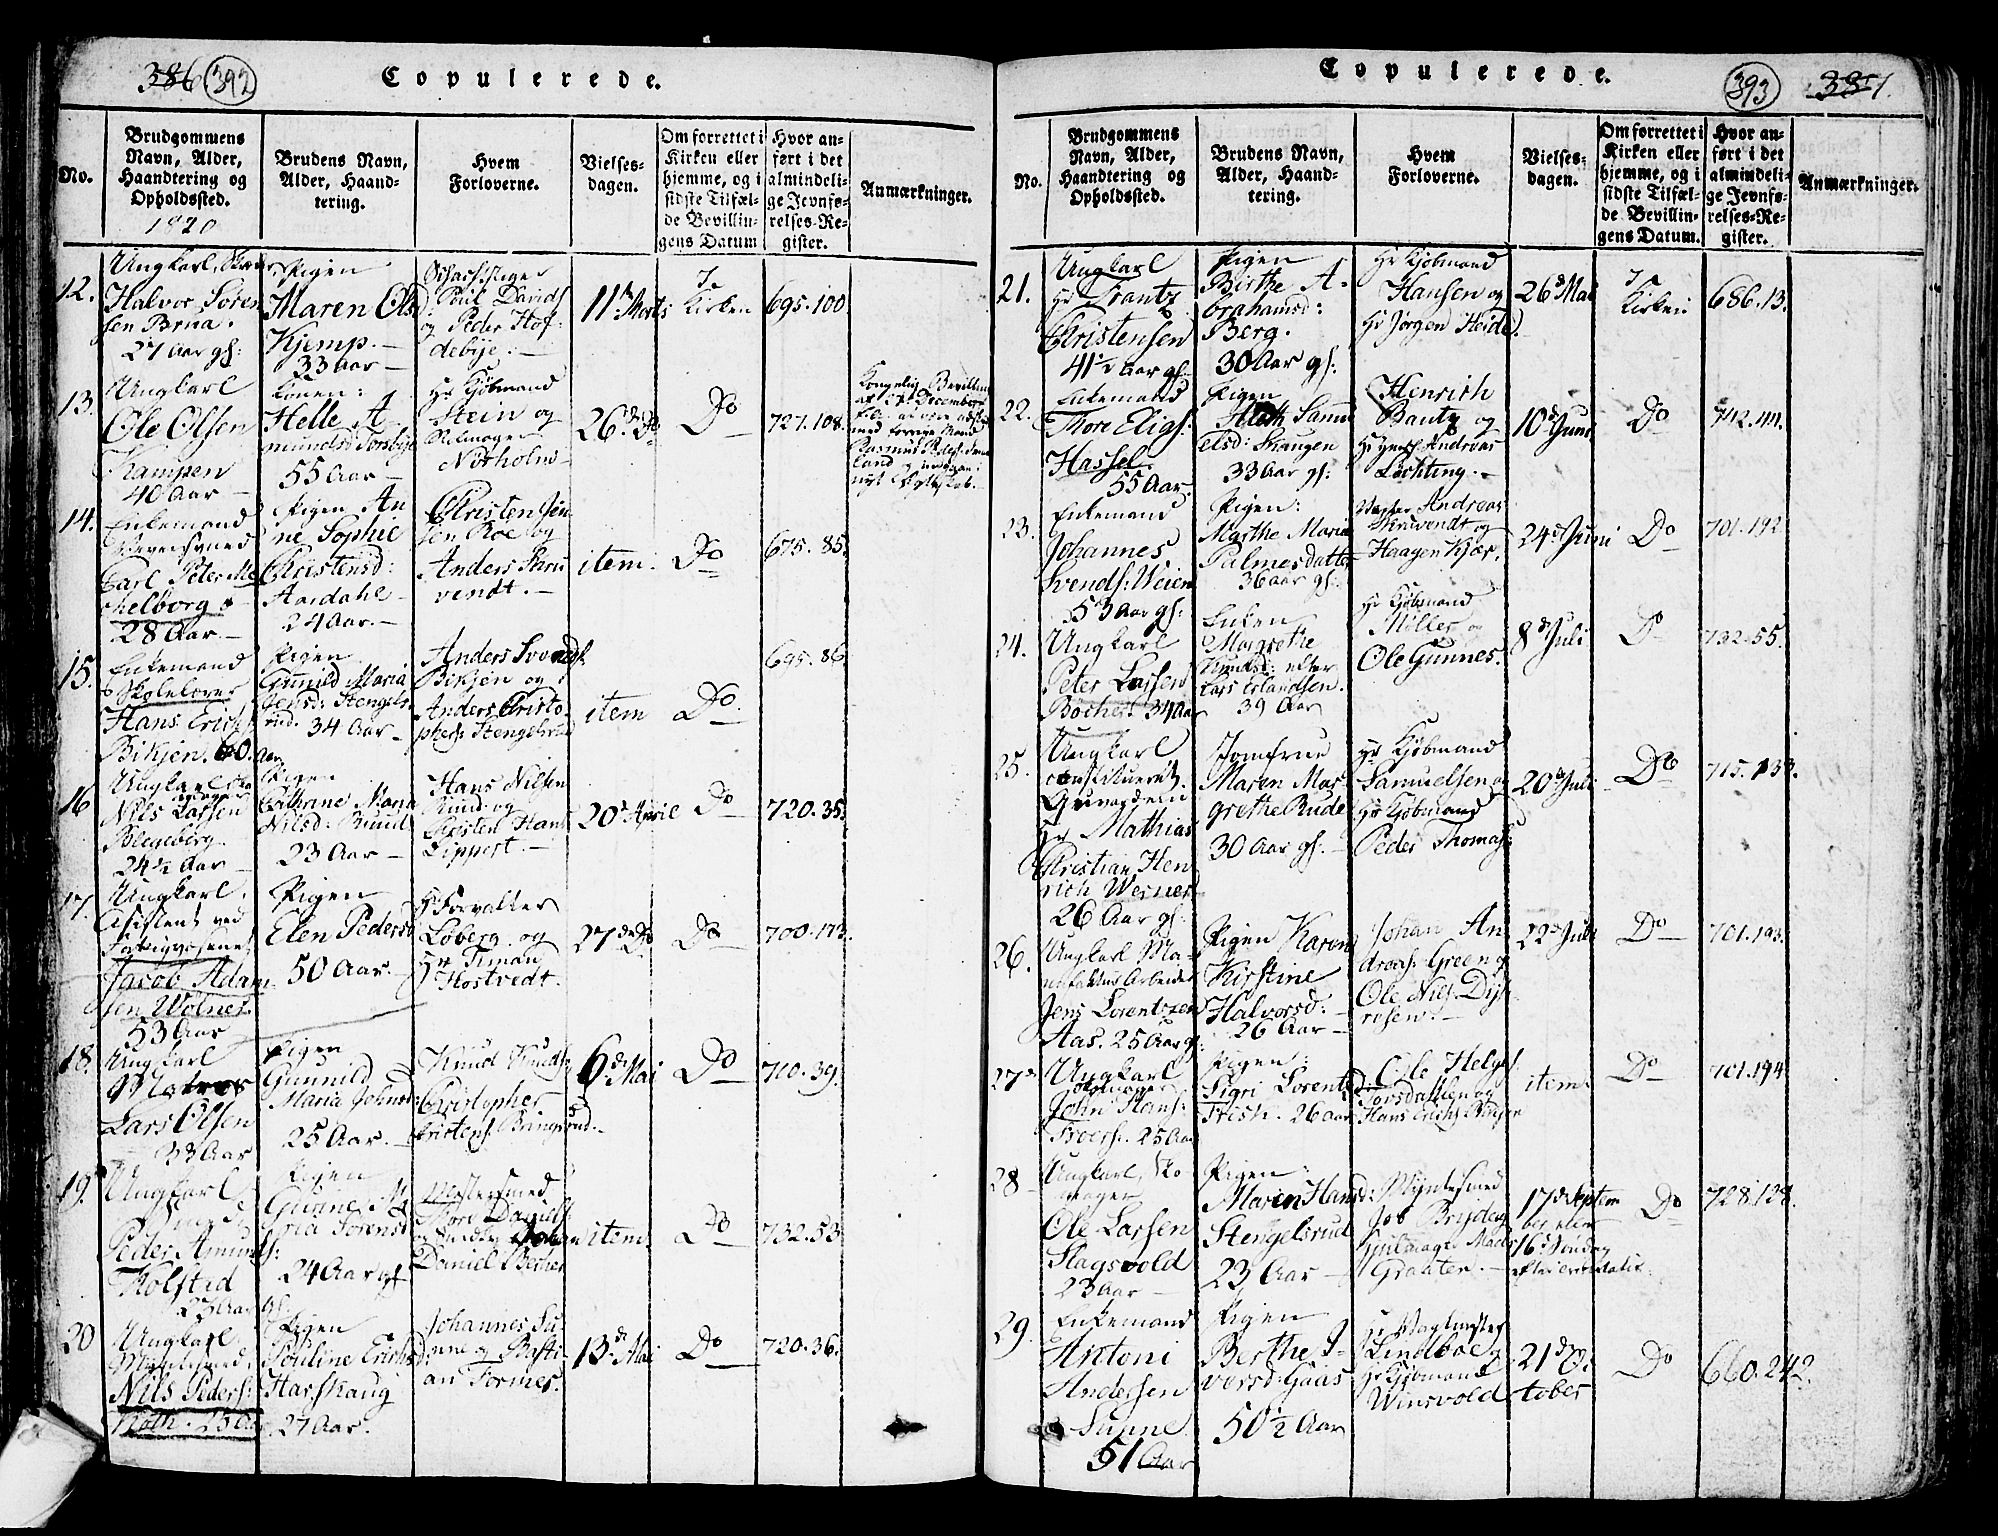 386 392
Copulerede.
No.
Brudgommens
Navn, Alder,
Haandtering og
Opholdssted.
1820
Brudens Navn,
Alder, Haand-
tering.
Hvem
Forloverne.
Vielses-
dagen.
Om forrettet i
Kirken eller
hjemme, og i
sidste Tilfæl-
de Bevillin-
gens Datum
Hvor an-
ført i det
almindeli-
ge Jevnfø-
relses-Re-
gister.
Anmærkninger.
12.
Ungkarl
Halvor Søren
sen Brua.
27 Aar gl:
Pigen
Maren Olsd:
Kjemp.
33 Aar
Poul Davids
og Peder Hof-
debije.
11te Marts
I
Kirken
695.100
13.
Ungkarl
Ole Olsen
Kampen
40 Aar
Konen:
Helle A-
mundsd
55 Aar
Hr Kjøbmand
Stein og
Norholm
26de Do
Do
727.108.
Kongelig Bevilling
14.
Enkemand
Carl Peter Me
chelborg
28 Aar.
Pigen An
ne Sophie
Christensd:
Aardahl
24 Aar.
Christen Jen
sen Roe og
Anders Skru
vendt.
item.
Do
675.85.
15.
Enkemand
Skolelærer
Hans Erichs
Bikjen. 60. Aar
Pigen
Gunild Maria
Jensd: Stengels
rud. 34 Aar
Anders Svends.
Bikjen og
Anders Christo
phers: Stengelsrud
item
Do.
695.86.
16
Ungkarl
Nils Larsen
Blegeberg.
24½ Aar
Pigen
Cathrine Maria
Nilsd: Ruud
23 Aar
Hans Nilsen
Ruud og
Christen Hans
Lippert.
20de April
Do
720.35.
17.
Ungkarl.
Assistent ved
Jacob Adam
sen Wølner.
53 Aar
Pigen
Elen Pedersd
50 Aar.
Hr Forvalter
Løberg og
Hr Timan
Hostvedt.
27de Do
Do
700.173.
18.
Ungkarl
Lars Olsen
23 Aar
Pigen
Gunnild
Maria Johnsd:
25 Aar.
Knud Knuds
Christopher
Christens: Bringsrud.
6de Mai
Do
710.39.
19.
Ungkarl
Peder Amunds:
Kolstad
23 Aar
Pigen
Gunne Ma
ria Sørensd
24 Aar gl
gl:
Mestersmed
Tore Daniels
Daniel Becher
item.
Do
732.53.
20
Ungkarl
Nils Peders:
Roth. 25 Aar
Pigen
Pouline Erichsd:
Harskaug
27 Aar.
Johannes Su
nne og Basti
an Formes.
13de Mai
Do
720.36.
Copulerede.
393 387.
No.
Brudgommens
Navn, Alder,
Haandtering og
Opholdssted.
Brudens Navn,
Alder, Haand-
tering.
Hvem
Forloverne.
Vielses-
dagen.
Om forrettet i
Kirken eller
hjemme, og i
sidste Tilfæl-
de Bevillin-
gens Datum.
Hvor an-
ført i det
almindeli-
ge Jevnfø-
relses-Re-
gister.
Anmærkninger.
21.
Ungkarl
Hr Frantz
Christensen
41½ Aar gl.
Pigen
Birthe A-
brahamsd:
Berg.
30 Aar gl:
Hr Kjøbmand
Hansen og
Hr Jørgen Heide.
26de Mai
I
Kirken
686.13.
22.
Enkemand
Thore Eligs:
Hassel.
55 Aar.
Pigen
Samu
elsd: Skaugen
33 Aar gl:
Henrich
Bautz og
Andreas
Lichting.
10de Juni
Do
742.44.
23.
Enkemand
Johannes
Svends: Weien
53 Aar gl:
Pigen:
Marthe Maria
Palmesdatter
36 aar gl:
Andreas
Skruvendt og
Haagen Kjær.
24de Juni
Do
701.192.
24.
Ungkarl
Peter Larsen
Bøcher. 34 Aar
Enken
Margrethe
Knudsd: efter
Lars Erlandsen.
39 Aar
Hr Kjøbmand
Møller og
Ole Gunnes.
8de Juli
Do
732.55.
25.
Ungkarl
constitueret
Hr Mathias
Christian Hen
rich Werner
26 Aar gl.
Jomfrue
Maren Mar-
grethe Rude
30 Aar gl.
Hr Kjøbmand
Samuelsen og
Hr Kjøbmand
Peder Thomas:
20de Juli
Do
715.133.
26.
Ungkarl Ma-
nufacturs Arbeider
Jens Lorentzen
Aas. 25 Aar gl.
Pigen Karen
Kirstine
Halvorsd:
26 Aar
Johan An
dreas: Green og
Ole Nils: Dys
rosen.
22de Juli
Do
701.193.
27.
Ungkarl
John Hans:
25 Aar
Pigen:
Sigri Lorentsd:
Frish. 26 aar
Ole Helges
Torsdahlen og
Hans Erichs
item.
Do
701.194
28
Ungkarl, Sko
mager
Ole Larsen
Slagsvold
23 Aar
Pigen:
Maren Hansd:
Stengelsrud
23 Aar
Myntesmed
Job Bryder og
Mads
Graater.
17de Septem
ber
16de Søndag
Do
728.128.
29.
Enkemand
Antoni
Andersen
Sunne
51 Aar
Pigen
Berthe I-
versd: Gaas
50½ Aar
Hr Vagtmester
Lindboe og
Hr Kjøbmand
Winsvold
21de Oc
tober
Do
660.242.